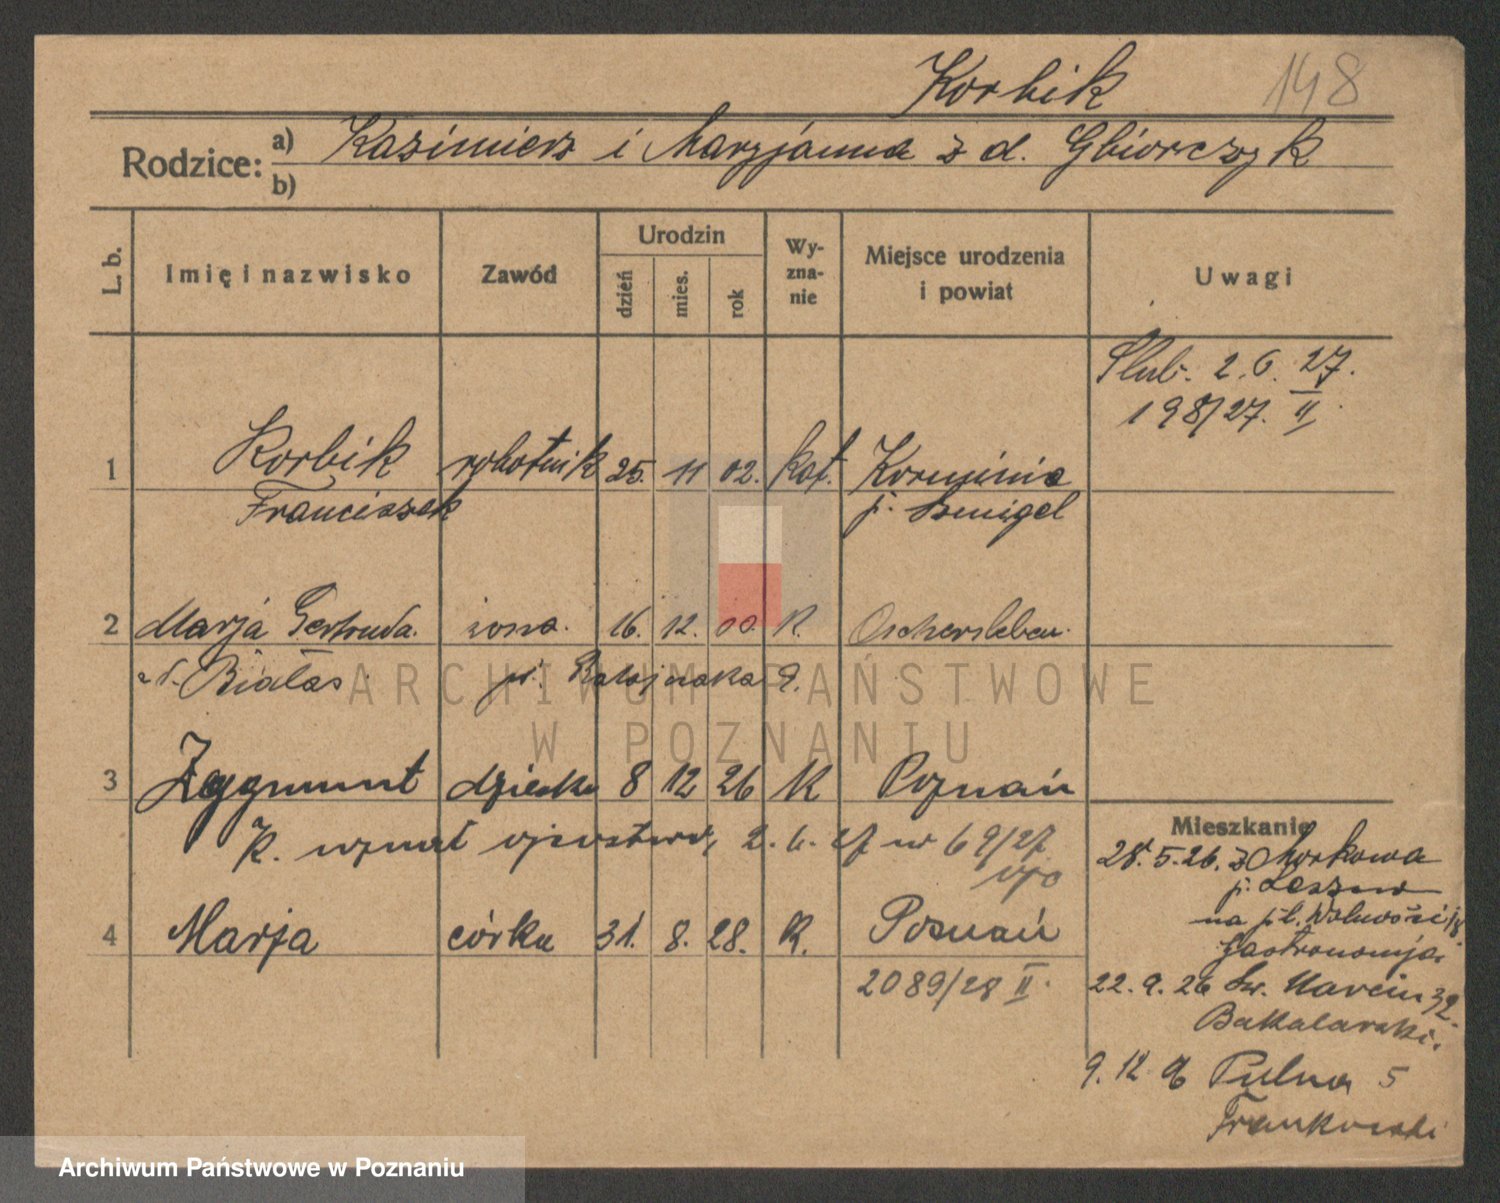 Korbik 148
Rodzice: a) Kazimierz i Maryjanna z d. Gbiorczyk
b)
L. b. Imię i nazwisko Zawód Urodzin dzień mies. rok Wy-zna-nie Miejsce urodzenia i powiat Uwagi
Ślub. 2. 6. 27.
198/27. II.
1 Korbik robotnik 25. 11 02. kat. Korminia
Franciszek p. Szmigel
2 Marja Gertruda żona. 16. 12. 00. K. Oschersleben.
z d. Białas ARCHIWUM PAŃSTWOWE
W POZNANIU
3 Zygmunt dziecko 8 12 26 K Poznań
K. uznał ojcostwo, 2. 6. 27 nr 69/27
Mieszkanie
28. 5. 26. z Morkowa
p. Leszno
na pl. Wolności 18.
Gastronomja.
4 Marja córka 31. 8. 28. K. Poznań
2089/28 II.
22. 9. 26 Św. Marcin 32.
Bakalarski.
9. 12. 26 Pulna 5
Frankowski
Archiwum Państwowe w Poznaniu